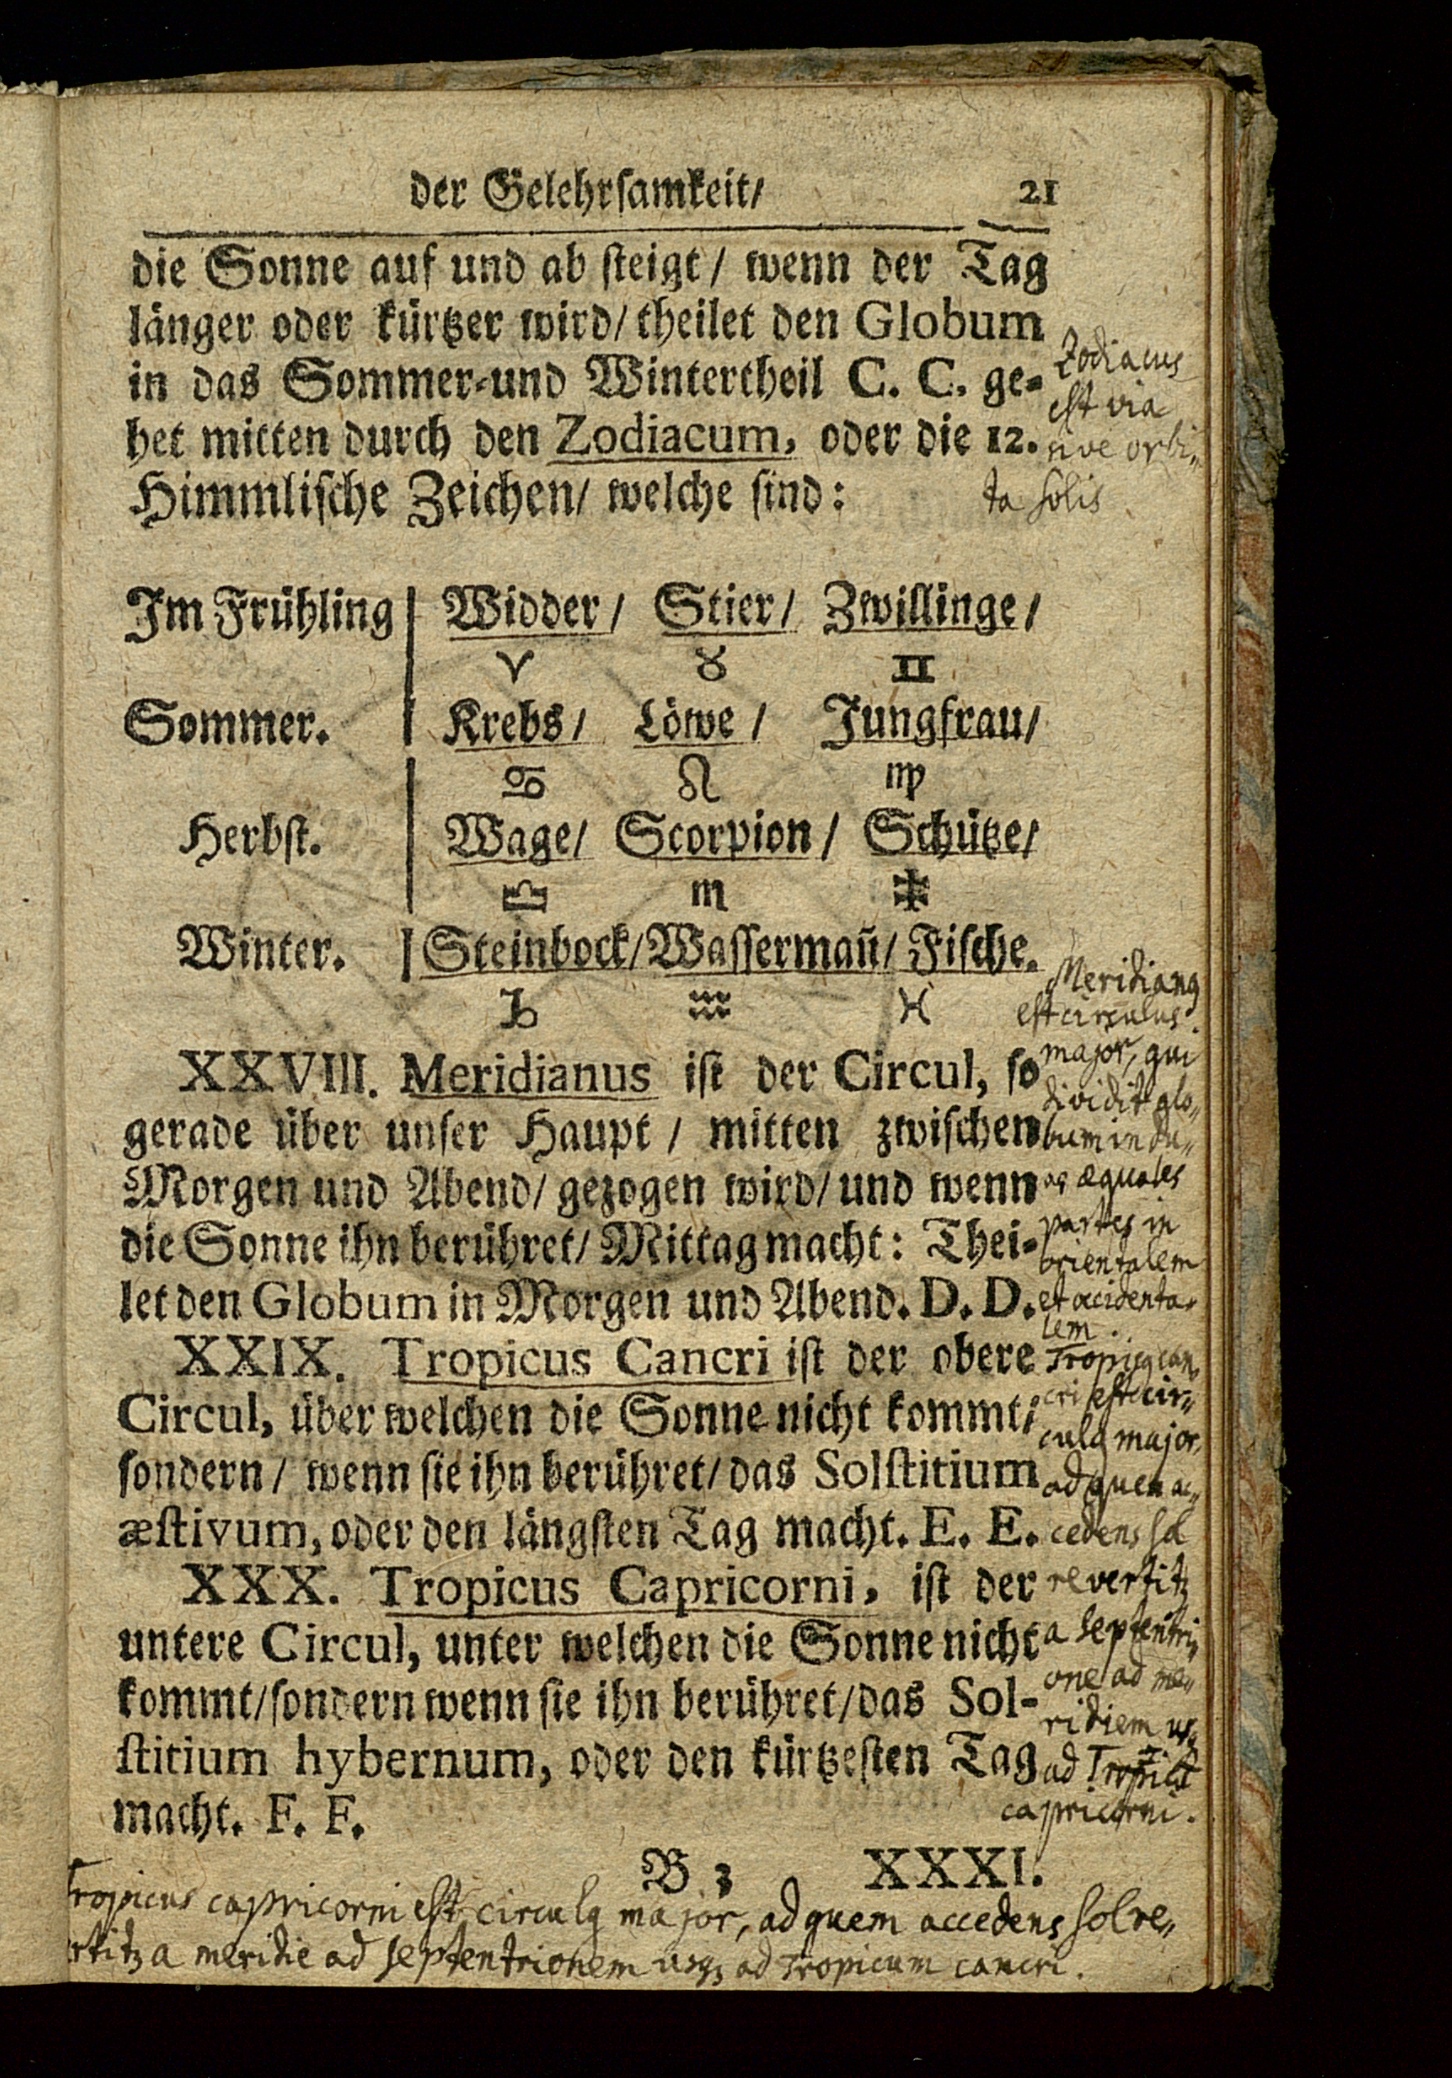 der Gelehrsamkeit/ 21
die Sonne auf und ab steigt/ wenn der Tag
länger oder kürtzer wird/ theilet den Globum
in das Sommer-und Wintertheil C. C. ge-
het mitten durch den Zodiacum, oder die 12.
Himmlische Zeichen/ welche sind:
Zodiacus
est via
sive orbi-
ta solis
Im Frühling Widder/ Stier/ Zwillinge/
♈ ♉ ♊
Sommer. Krebs/ Löwe/ Jungfrau/
♋ ♌ ♍
Herbst. Wage/ Scorpion/ Schütze/
♎ ♏ ♐
Winter. Steinbock/ Wassermañ/ Fische.
♑ ♒ ♓
XXVIII. Meridianus ist der Circul, so
gerade über unser Haupt / mitten zwischen
Morgen und Abend/ gezogen wird/ und wenn
die Sonne ihn berühret/ Mittag macht: Thei-
let den Globum in Morgen und Abend. D. D.
Meridianꝰ
est circulus
major, qui
dividit glo-
bum in du-
as æquales
partes in
orientalem
et occidenta-
lem.
XXIX. Tropicus Cancri ist der obere
Circul, über welchen die Sonne nicht kommt/
sondern/ wenn sie ihn berühret/ das Solstitium
æstivum, oder den längsten Tag macht. E. E.
XXX. Tropicus Capricorni, ist der
untere Circul, unter welchen die Sonne nicht
kommt/ sondern wenn sie ihn berühret/ das Sol-
stitium hybernum, oder den kürtzesten Tag
macht. F. F.
Tropicꝰ can-
cri est cir-
culꝰ major,
ad quem ac-
cedens sol
revertitꝫ
a septentri-
one ad me-
ridiem
ad Tropicū
capricorni.
B 3 XXXI.
Tropicus capricorni est circulꝰ major, ad quem accedens sol re-
rtitꝫ a meridie ad septentrionem usqꝫ ad Tropicum cancri.